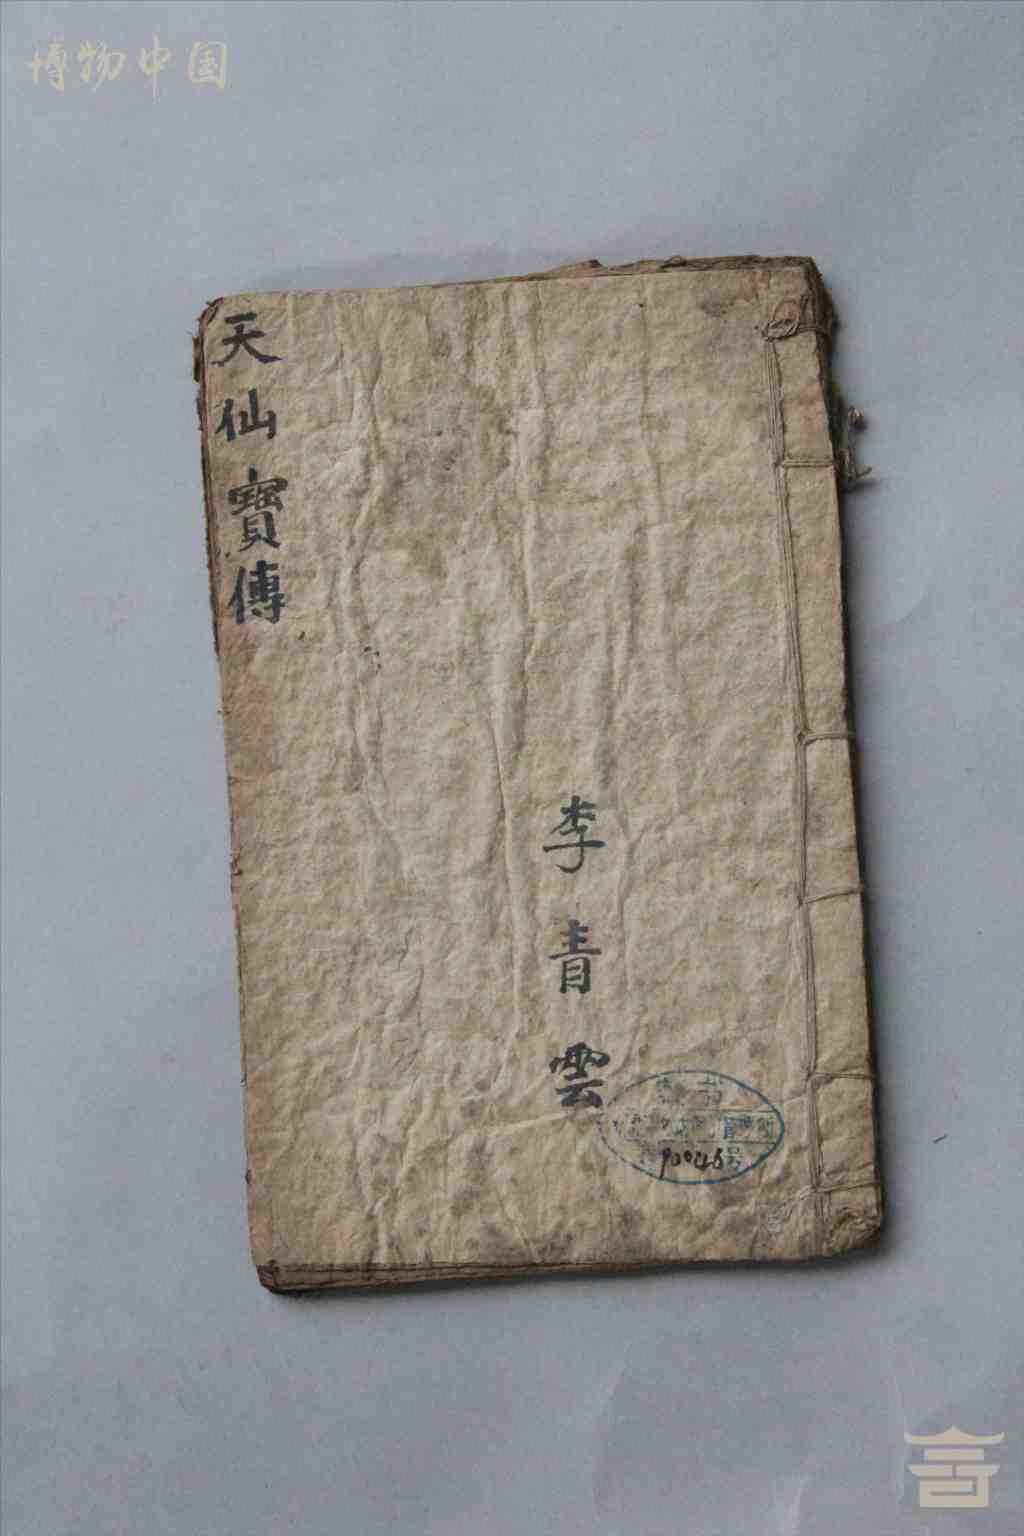 博物中国
天仙寶傳
李青雲
90046号